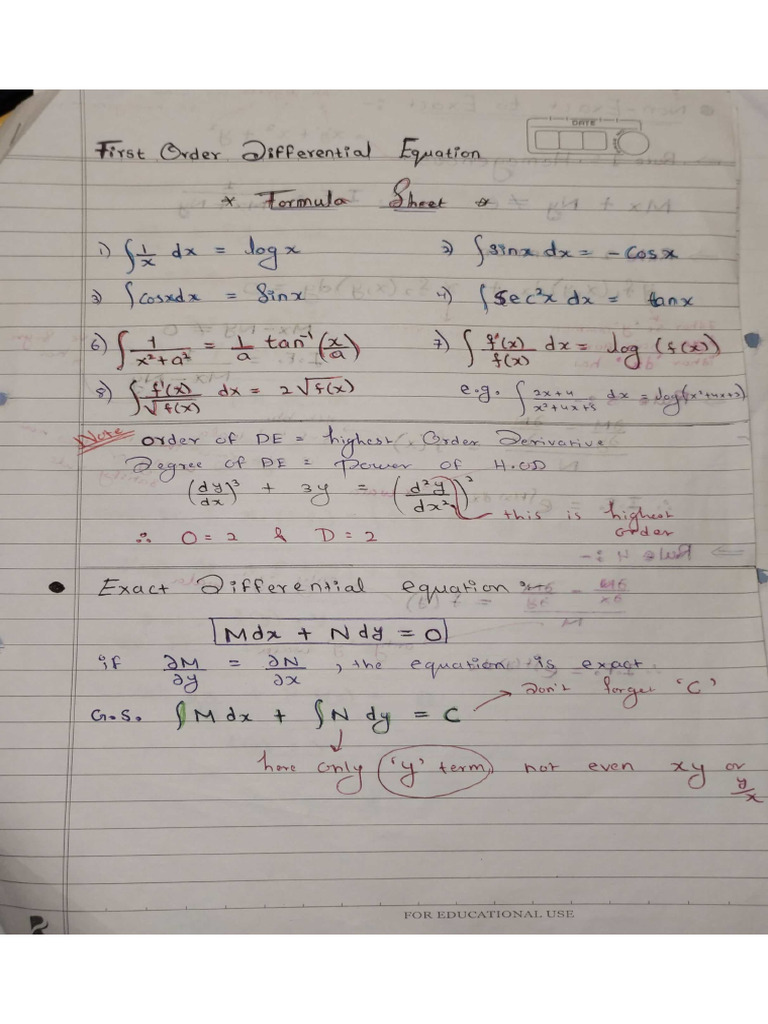 DATE
First Order Differential Equation
* Formula Sheet *
1) ∫ 1/x dx = log x    2) ∫ sinx dx = - cos x
3) ∫ cosxdx = sinx    4) ∫ sec²x dx = tanx
6) ∫ 1/(x²+a²) = 1/a tan⁻¹(x/a)    7) ∫ f'(x)/f(x) dx = log (f(x))
8) ∫ f'(x)/√f(x) dx = 2√f(x)    e.g. ∫ (2x+4)/(x²+4x+5) dx = log(x²+4x+5)
Note order of DE = highest Order Derivative
Degree of DE = Power of H.OD
(dy/dx)³ + 3y = (d²y/dx²)² this is highest order
∴ O = 2 & D = 2
• Exact Differential equation :-
Mdx + Ndy = 0
if ∂M/∂y = ∂N/∂x , the equation is exact
G.S. ∫ M dx + ∫ N dy = C → Don't forget 'C'
here only 'y' term not even xy or y/x
FOR EDUCATIONAL USE